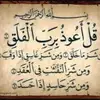 بسم الله الرحمن الرحيم
قُلْ أَعُوذُ بِرَبِّ الْفَلَقِ
مِن شَرِّ مَا خَلَقَ وَمِن شَرِّ غَاسِقٍ إِذَا وَقَبَ
وَمِن شَرِّ النَّفَّاثَاتِ فِي الْعُقَدِ
وَمِن شَرِّ حَاسِدٍ إِذَا حَسَدَ